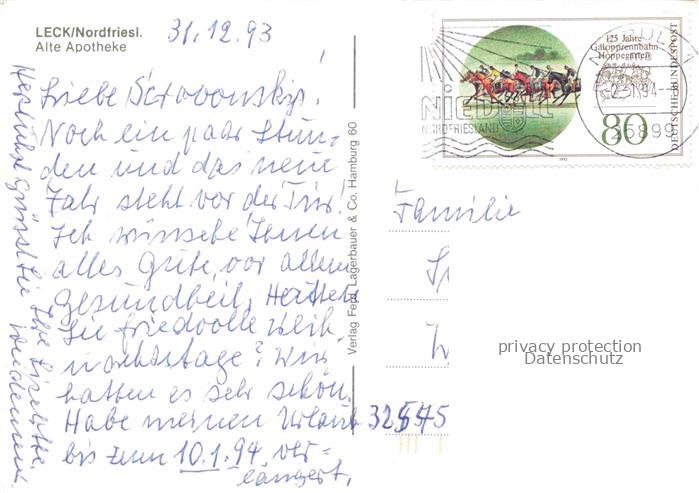 LECK/Nordfriesl.
Alte Apotheke
31.12.93
Liebe
Noch ein paar Stun-
den und das neue
Jahr steht vor der Tür!
Ich wünsche Ihnen
alles Gute, vor allem
Gesundheit. Hatten
Sie friedvolle Weih-
nachtstage? Wir
hatten es sehr schön.
Habe meinen Urlaub
bis zum 10.1.94 ver-
längert.
Herzlichst grüsst Sie Ihre Liselotte
Verlag Lagerbauer & Co. Hamburg 60
125 Jahre
Galopprennbahn
Hoppegarten
80
DEUTSCHE BUNDESPOST
1993
NIEBÜLL
NORDFRIESLAND
NIEBÜLL
-2.-1.94-
25899
Familie
32545
privacy protection
Datenschutz